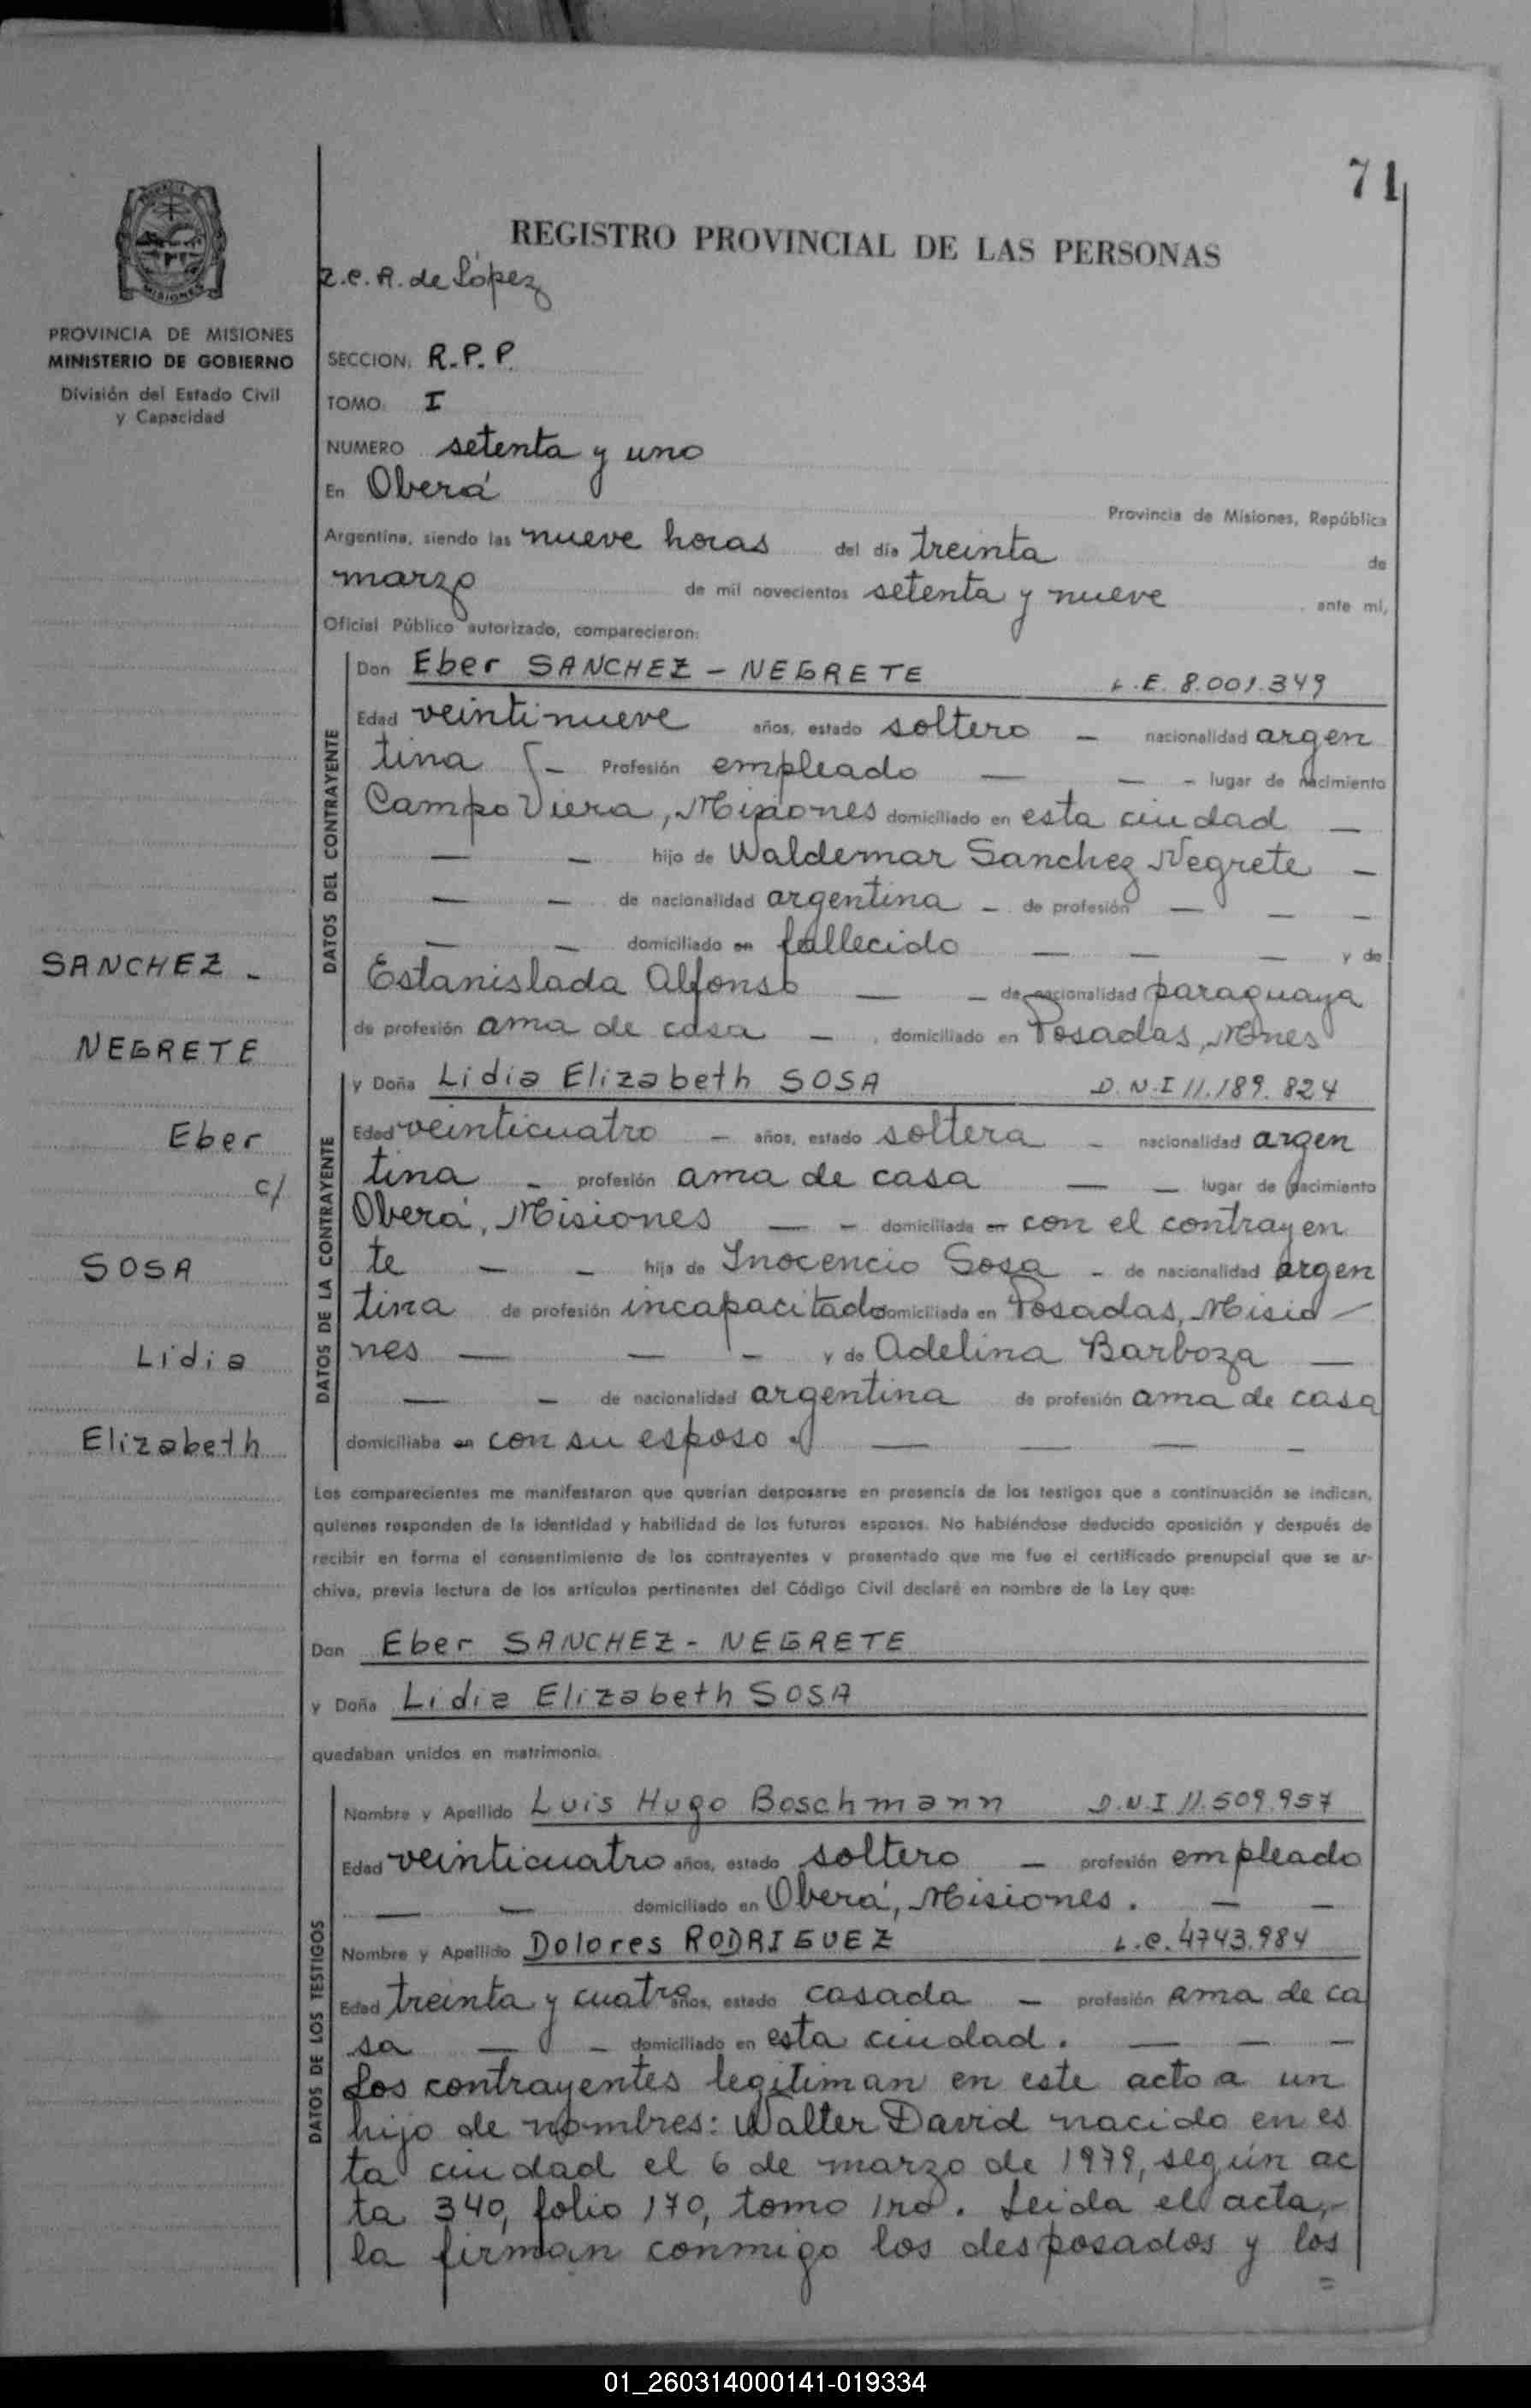 71
REGISTRO PROVINCIAL DE LAS PERSONAS
Z.C.R. de López
PROVINCIA DE MISIONES
MINISTERIO DE GOBIERNO
División del Estado Civil
y Capacidad
SECCION: R.P.P.
TOMO: I
NUMERO setenta y uno
En Oberá
Provincia de Misiones, República
Argentina, siendo las nueve horas del día treinta de
marzo de mil novecientos setenta y nueve ante mí,
Oficial Público autorizado, comparecieron:
DATOS DEL CONTRAYENTE
Don Eber SANCHEZ - NEGRETE L.E. 8.001.349
Edad veintinueve años, estado soltero — nacionalidad argen
tina - Profesión empleado — — - lugar de nacimiento
Campo Viera, Misiones domiciliado en esta ciudad —
— — hijo de Waldemar Sanchez Negrete —
— — de nacionalidad argentina — de profesión — — —
— — domiciliado en fallecido — — — y de
Estanislada Alfonso — — de nacionalidad paraguaya
de profesión ama de casa — , domiciliado en Posadas, Mnes
SANCHEZ -
NEGRETE
Eber
c/
SOSA
Lidia
Elizabeth
DATOS DE LA CONTRAYENTE
y Doña Lidia Elizabeth SOSA D.N.I 11.189.824
Edad veinticuatro — años, estado soltera — nacionalidad argen
tina - profesión ama de casa — — lugar de nacimiento
Oberá, Misiones — - domiciliada en con el contrayen
te — — hija de Inocencio Sosa - de nacionalidad argen
tina de profesión incapacitado domiciliada en Posadas, Misio
nes — — - y de Adelina Barboza —
— — de nacionalidad argentina de profesión ama de casa
domiciliaba en con su esposo. — — — -
Los comparecientes me manifestaron que querían desposarse en presencia de los testigos que a continuación se indican,
quienes responden de la identidad y habilidad de los futuros esposos. No habiéndose deducido oposición y después de
recibir en forma el consentimiento de los contrayentes y presentado que me fue el certificado prenupcial que se ar-
chiva, previa lectura de los artículos pertinentes del Código Civil declaré en nombre de la Ley que:
Don Eber SANCHEZ - NEGRETE
y Doña Lidia Elizabeth SOSA
quedaban unidos en matrimonio.
DATOS DE LOS TESTIGOS
Nombre y Apellido Luis Hugo Boschmann D.N.I 11.509.957
Edad veinticuatro años, estado soltero — profesión empleado
— — domiciliado en Oberá, Misiones. — —
Nombre y Apellido Dolores RODRIGUEZ L.C. 4743.984
Edad treinta y cuatro años, estado casada — profesión ama de ca
sa — — domiciliado en esta ciudad. — — —
Los contrayentes legitiman en este acto a un
hijo de nombres: Walter David nacido en es
ta ciudad el 6 de marzo de 1979, según ac
ta 340, folio 170, tomo 1ro. Leida el acta,
la firman conmigo los desposados y los
=
01_260314000141-019334